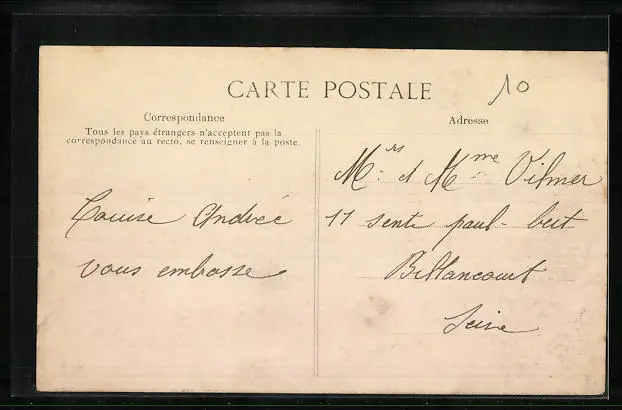 CARTE POSTALE
10
Correspondance
Tous les pays étrangers n'acceptent pas la
correspondance au recto, se renseigner à la poste.
Louise Andrée
vous embrasse
Adresse
Mrs et Mme Vilmer
11 sente paul-bert
Billancourt
Seine